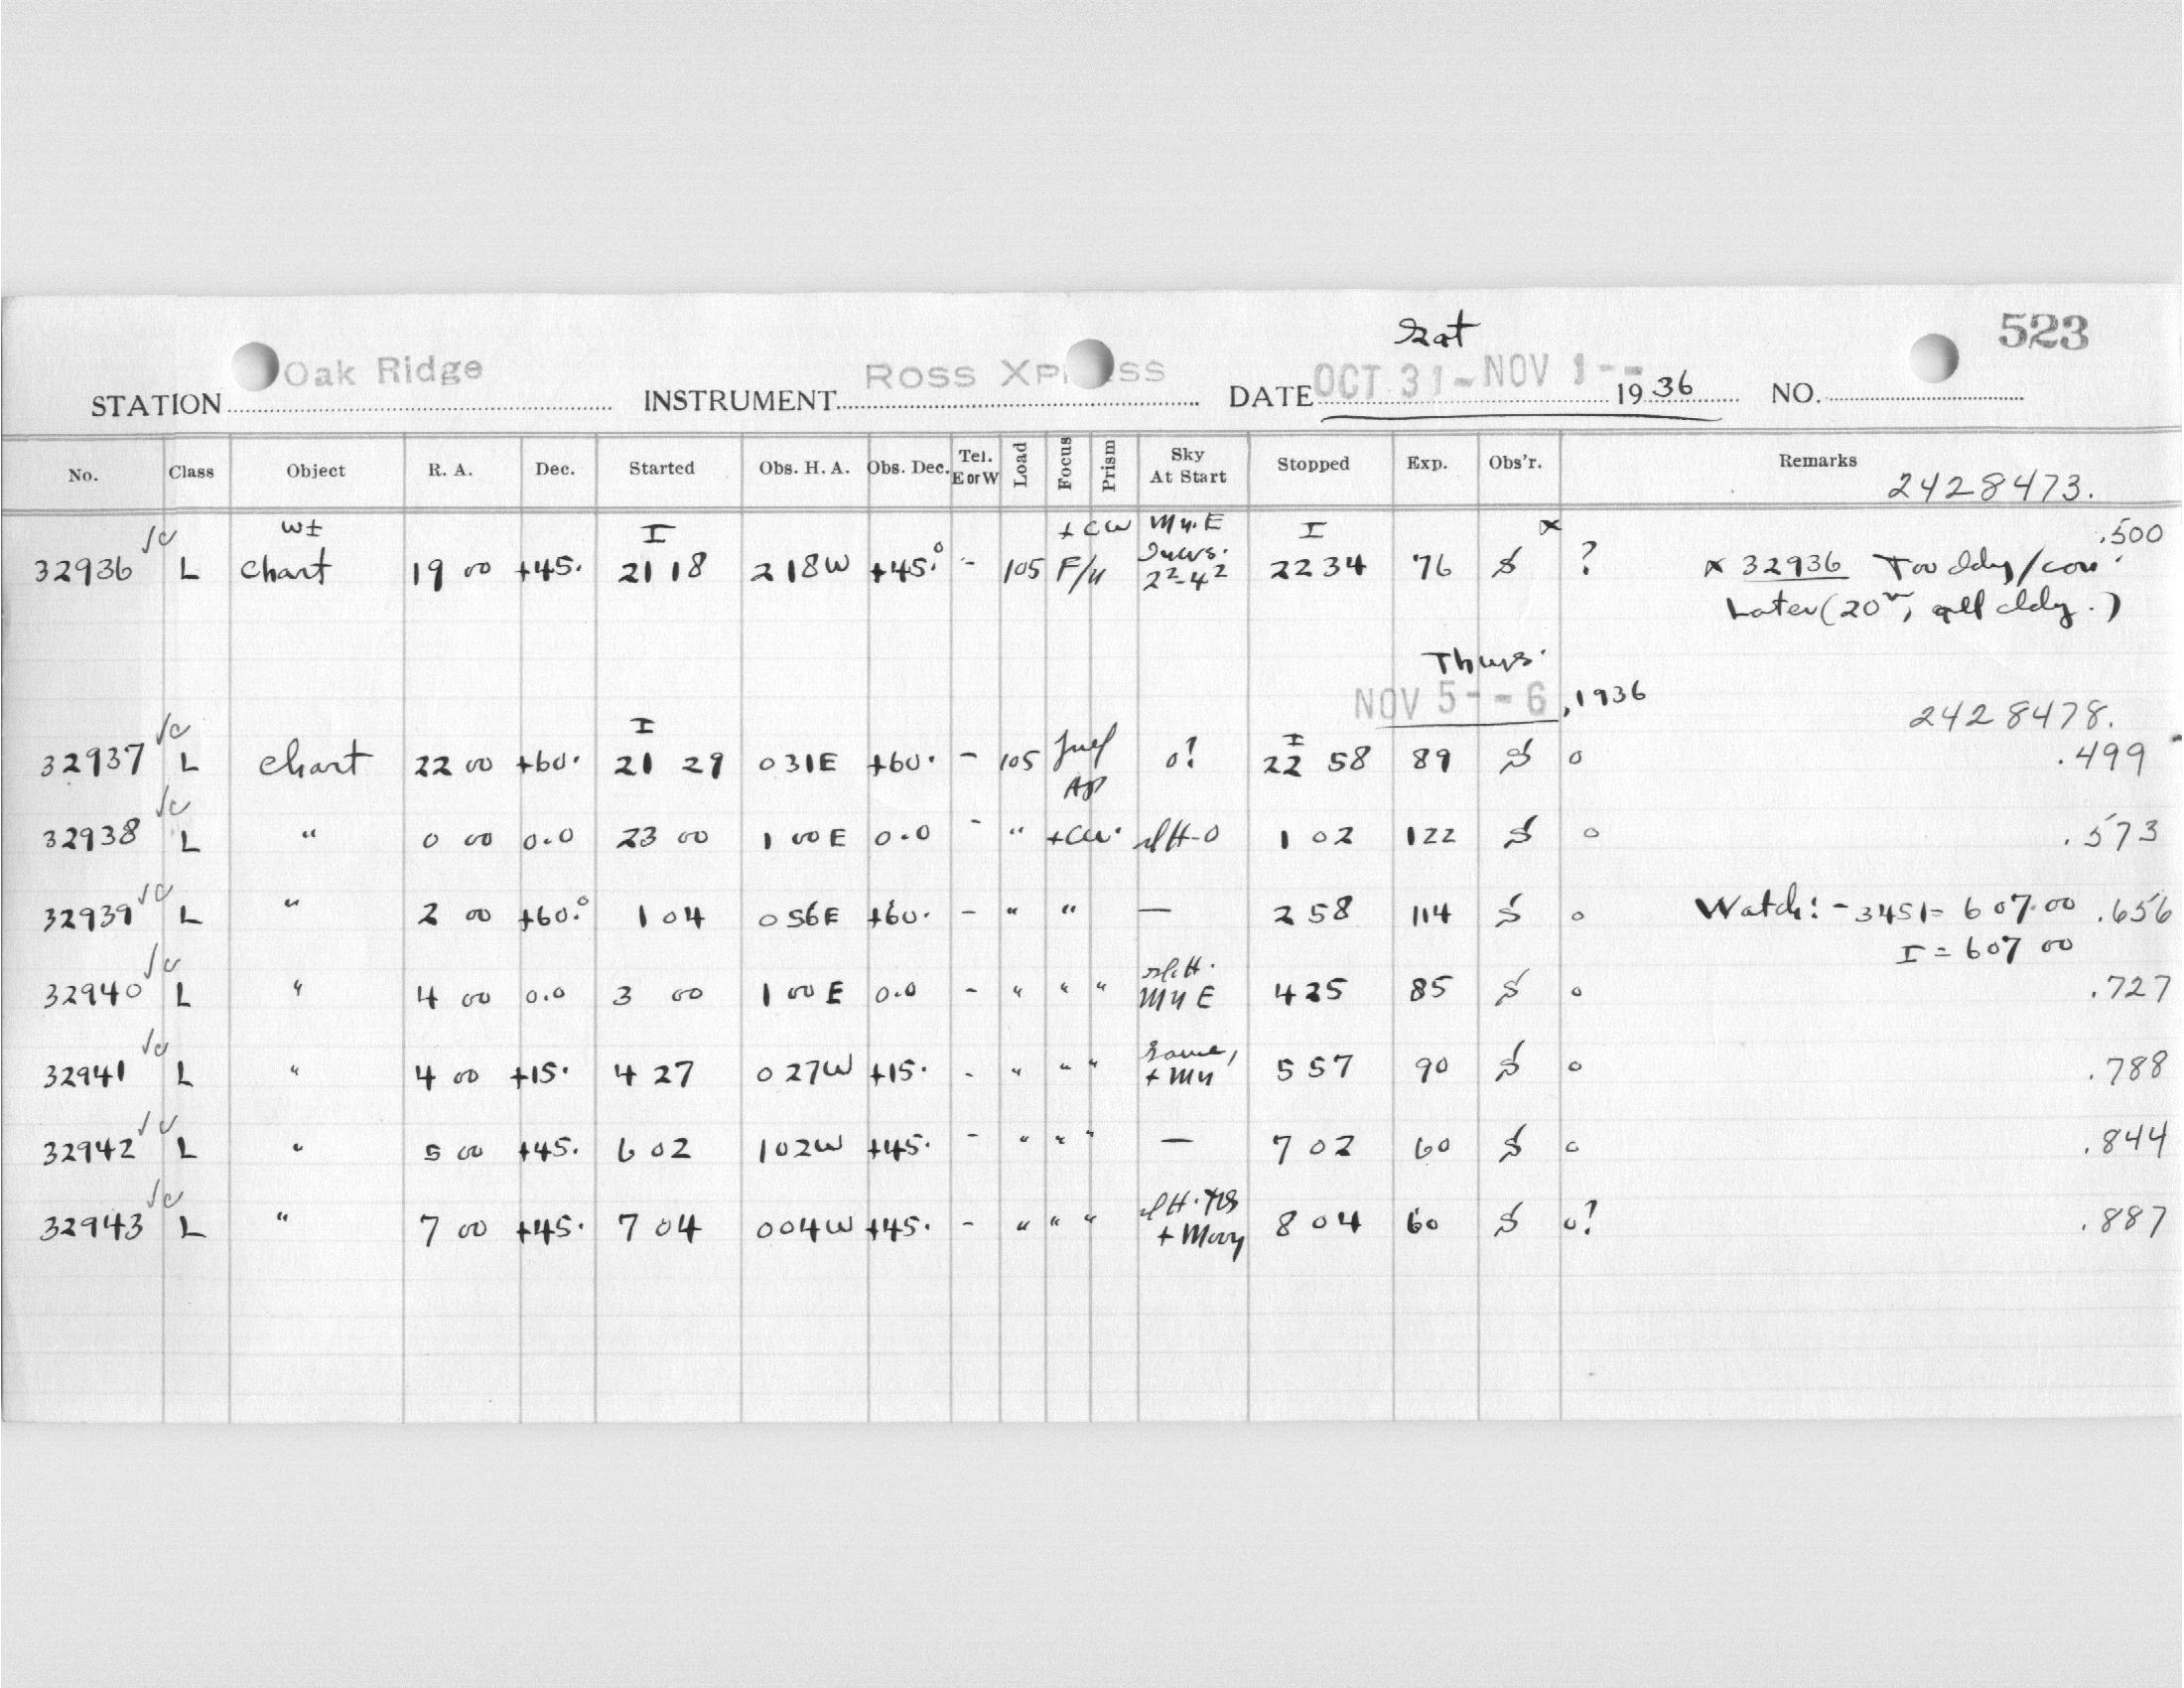 Sat
523
STATION Oak Ridge INSTRUMENT ROSS XP SS DATE OCT 31 - NOV 1 - - 1936 NO.
No. Class Object R. A. Dec. Started Obs. H. A. Obs. Dec. Tel. E or W Load Focus Prism Sky At Start Stopped Exp. Obs'r. Remarks
2428473.
W± I + CW My. E I x .500
32936 √c L Chart 19 00 +45. 21 18 2 18W +45.° - 105 F/4 2²-4² 22 34 76 S ? x 32936 Too cldy/con.
Later (20ᵐ, all cldy.)
Thurs.
NOV 5 - - 6, 1936
2428478.
32937 √c L Chart 22 00 +60. I 21 29 0 31E +60. - 105 o! I 22 58 89 S o .499
32938 √c L " 0 00 0.0 23 00 1 00 E 0.0 - " +CW. slH-0 1 02 122 S o .573
32939 √c L " 2 00 +60.° 1 04 0 56E +60. - " " — 2 58 114 S o Watch: - 3451 = 6 07 00 .656
I = 6 07 00
32940 √c L " 4 00 0.0 3 00 1 00 E 0.0 - " " " sl.H. My E 4 25 85 S o .727
32941 √c L " 4 00 +15. 4 27 0 27W +15. - " " " Same, + My 5 57 90 S o .788
32942 √c L " 5 00 +45. 6 02 1 02W +45. - " " " — 7 02 60 S o .844
32943 √c L " 7 00 +45. 7 04 0 04W +45. - " " " slH. + Moon 8 04 60 S o? .887